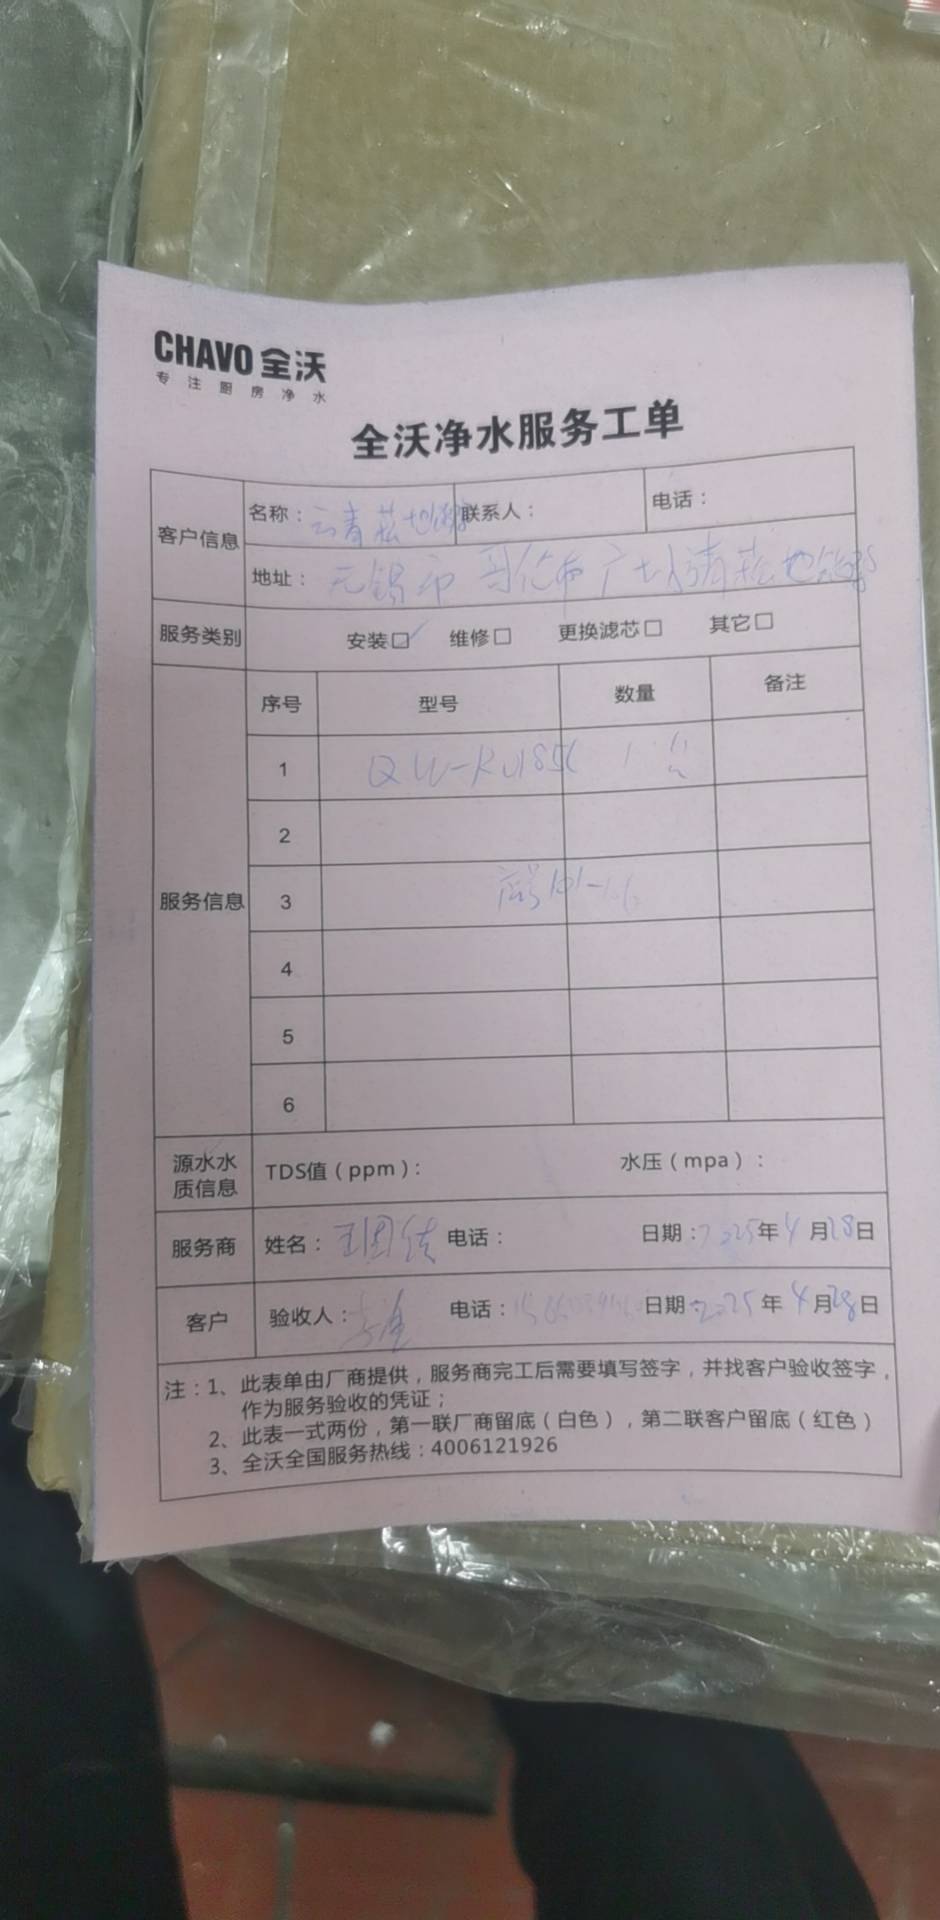 CHAVO 全沃
专注厨房净水
全沃净水服务工单
客户信息
名称：云青菘地 联系人： 电话：
地址：无锡市哥伦布广场 青菘地
服务类别 安装□✓ 维修□ 更换滤芯□ 其它□
服务信息
序号 型号 数量 备注
1 1台
2
3 店号101-
4
5
6
源水水质信息 TDS值（ppm）： 水压（mpa）：
服务商 姓名：王国 电话： 日期：2025年4月28日
客户 验收人： 电话： 日期：2025年4月28日
注：1、此表单由厂商提供，服务商完工后需要填写签字，并找客户验收签字，
作为服务验收的凭证；
2、此表一式两份，第一联厂商留底（白色），第二联客户留底（红色）
3、全沃全国服务热线：4006121926